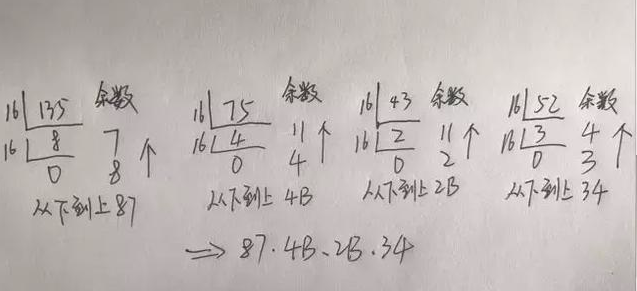 16 135 余数 16 75 余数 16 43 余数 16 52 余数
16 8 7 ↑ 16 4 11 ↑ 16 2 11 ↑ 16 3 4 ↑
0 8 0 4 0 2 0 3
从下到上 87 从下到上 4B 从下到上 2B 从下到上 34
⇒ 87.4B.2B.34